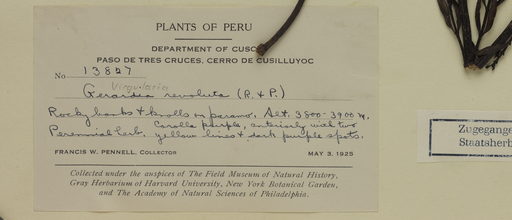 PLANTS OF PERU
DEPARTMENT OF CUSCO
PASO DE TRES CRUCES, CERRO DE CUSILLUYOC
No 13827
Virgularia
Gerardia revoluta (R. & P.)
Rocky banks & knolls on paramo. Alt. 3800-3900 m.
Perennial herb. Corolla purple, anteriorly with two
yellow lines & dark purple spots.
FRANCIS W. PENNELL, COLLECTOR MAY 3, 1925
Collected under the auspices of The Field Museum of Natural History,
Gray Herbarium of Harvard University, New York Botanical Garden,
and The Academy of Natural Sciences of Philadelphia.
Zugegange
Staatsherb